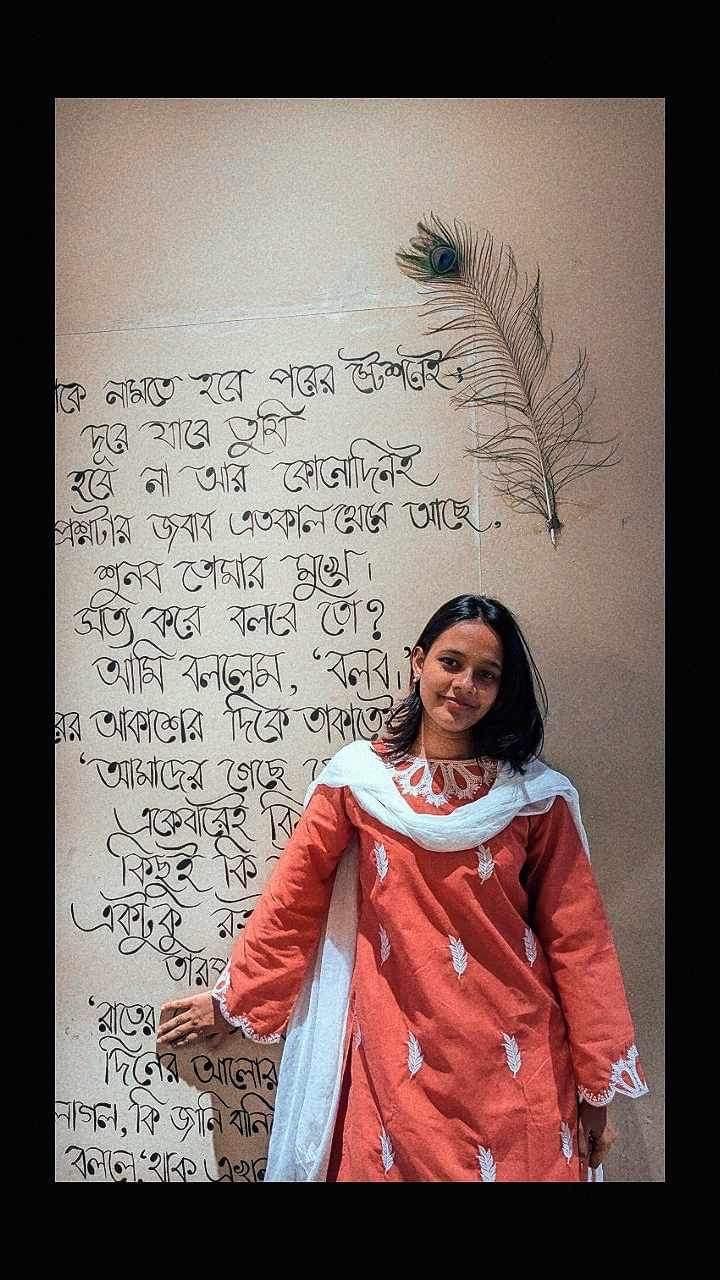 কে নামতে হবে পরের স্টেশনেই;
দূরে যাবে তুমি
হবে না আর কোনোদিনই
প্রশ্নটার জবাব এতকাল থেমে আছে,
শুনব তোমার মুখে।
সত্য করে বলবে তো?
আমি বললেম, ‘বলব।’
আকাশের দিকে তাকাতেই
‘আমাদের গেছে
একেবারেই কি
কিছুই কি
একটুকু
‘রাতের
দিনের আলোর
লাগল, কি জানি
বললে, ‘থাক